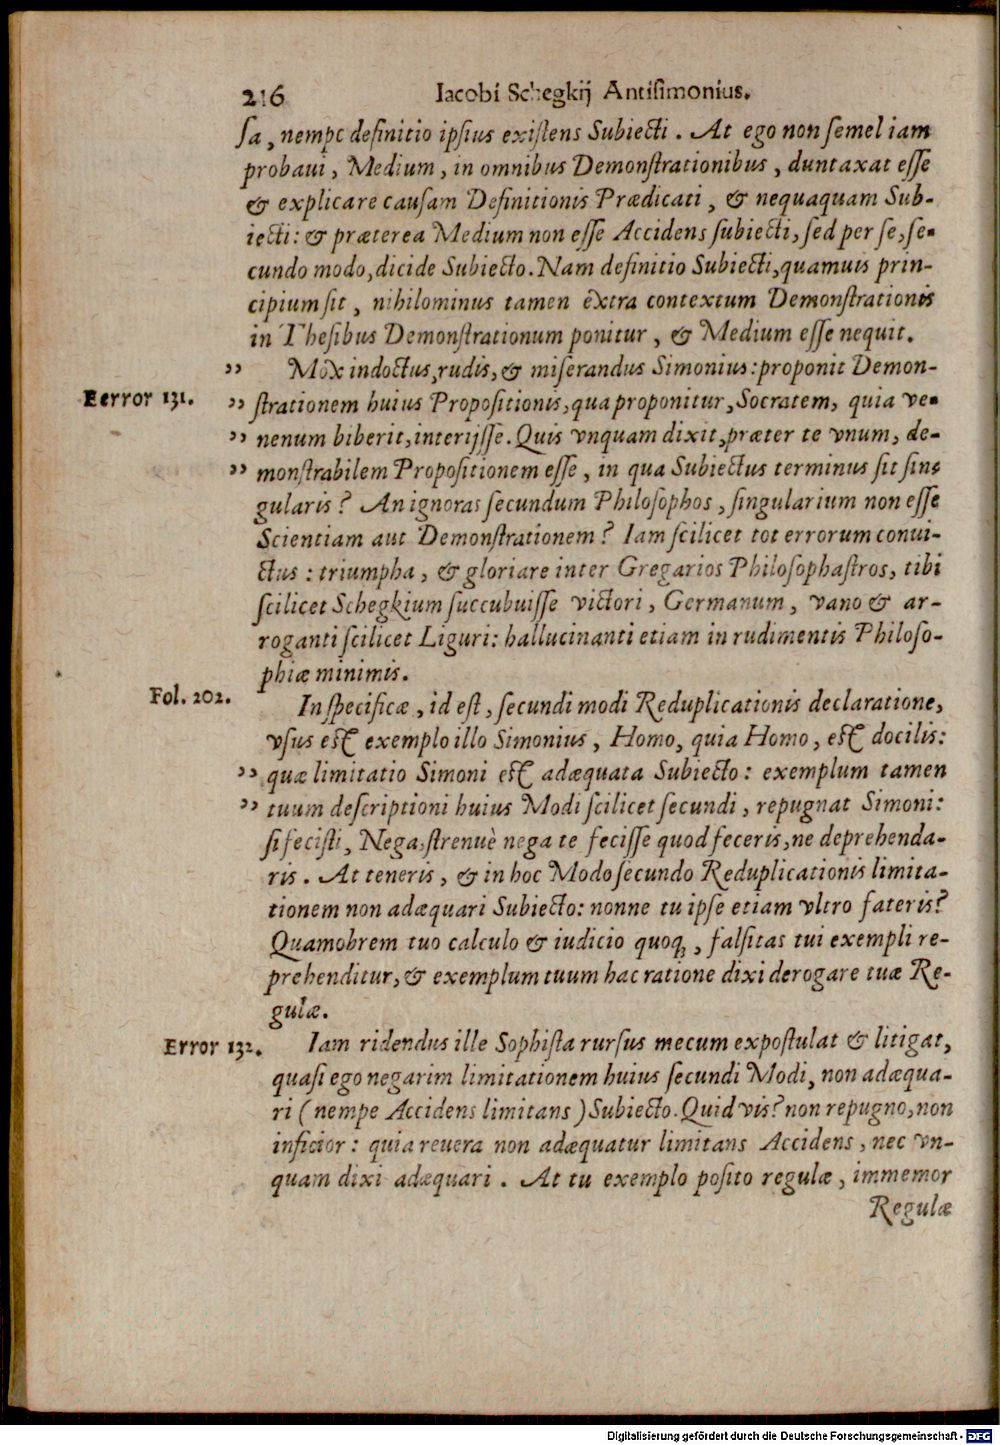 216 Iacobi Schegkij Antisimonius.
sa, nempe definitio ipsius existens Subiecti. At ego non semel iam
probaui, Medium, in omnibus Demonstrationibus, duntaxat esse
& explicare causam Definitionis Prædicati, & nequaquam Sub-
iecti: & præterea Medium non esse Accidens subiecti, sed per se, se-
cundo modo, dici de Subiecto. Nam definitio Subiecti, quamuis prin-
cipium sit, nihilominus tamen extra contextum Demonstrationis
in Thesibus Demonstrationum ponitur, & Medium esse nequit.
„ Mox indoctus, rudis, & miserandus Simonius: proponit Demon-
Eerror 131. „ strationem huius Propositionis, qua proponitur, Socratem, quia ve-
„ nenum biberit, interijsse. Quis vnquam dixit, præter te vnum, de-
„ monstrabilem Propositionem esse, in qua Subiectus terminus sit sin-
gularis? An ignoras secundum Philosophos, singularium non esse
Scientiam aut Demonstrationem? Iam scilicet tot errorum conui-
ctus: triumpha, & gloriare inter Gregarios Philosophastros, tibi
scilicet Schegkium succubuisse victori, Germanum, vano & ar-
roganti scilicet Liguri: hallucinanti etiam in rudimentis Philoso-
phiæ minimis.
Fol. 202. In specificæ, id est, secundi modi Reduplicationis declaratione,
vsus est exemplo illo Simonius, Homo, quia Homo, est docilis:
„ quæ limitatio Simoni est adæquata Subiecto: exemplum tamen
„ tuum descriptioni huius Modi scilicet secundi, repugnat Simoni:
si fecisti, Nega, strenuè nega te fecisse quod feceris, ne deprehenda-
ris. At teneris, & in hoc Modo secundo Reduplicationis limita-
tionem non adæquari Subiecto: nonne tu ipse etiam vltro fateris?
Quamobrem tuo calculo & iudicio quoq;, falsitas tui exempli re-
prehenditur, & exemplum tuum hac ratione dixi derogare tuæ Re-
gulæ.
Error 132. Iam ridendus ille Sophista rursus mecum expostulat & litigat,
quasi ego negarim limitationem huius secundi Modi, non adæqua-
ri (nempe Accidens limitans) Subiecto. Quid vis? non repugno, non
inficior: quia reuera non adæquatur limitans Accidens, nec vn-
quam dixi adæquari. At tu exemplo posito regulæ, immemor
Regulæ
Digitalisierung gefördert durch die Deutsche Forschungsgemeinschaft - DFG